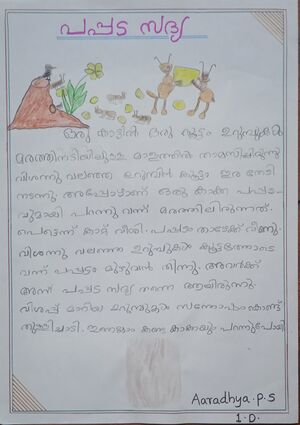 പപ്പട സദ്യ
ഒരു കാട്ടിൽ ഒരു കൂട്ടം ഉറുമ്പുകൾ
മരത്തിനടിയിലുള്ള മാളത്തിൽ താമസിച്ചിരുന്നു
വിശന്നു വലഞ്ഞ ഉറുമ്പിൻ കൂട്ടം ഇര തേടി
നടന്നു. അപ്പോഴാണ് ഒരു കാക്ക പപ്പട
വുമായി പറന്നു വന്ന് മരത്തിലിരുന്നത്.
പെട്ടെന്ന് കാറ്റ് വീശി. പപ്പടം താഴേക്ക് വീണു.
വിശന്നു വലഞ്ഞ ഉറുമ്പുകൾ കൂട്ടത്തോടെ
വന്ന് പപ്പടം മുഴുവൻ തിന്നു. അവർക്ക്
അന്ന് പപ്പട സദ്യ തന്നെ ആയിരുന്നു.
വിശപ്പ് മാറിയ ഉറുമ്പുകൾ സന്തോഷം കൊണ്ട്
തുള്ളിച്ചാടി. ഇതെല്ലാം കണ്ട കാക്കയും പറന്നുപോയി
Aaradhya.P.S
1.D.